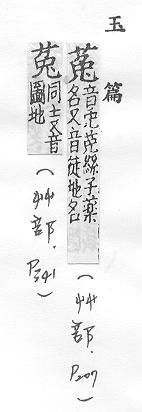 玉篇
菟 音兎菟絲子藥名又音徒地名
(艸部. P207)
莵 同上又音圖地
(艸部. P341)